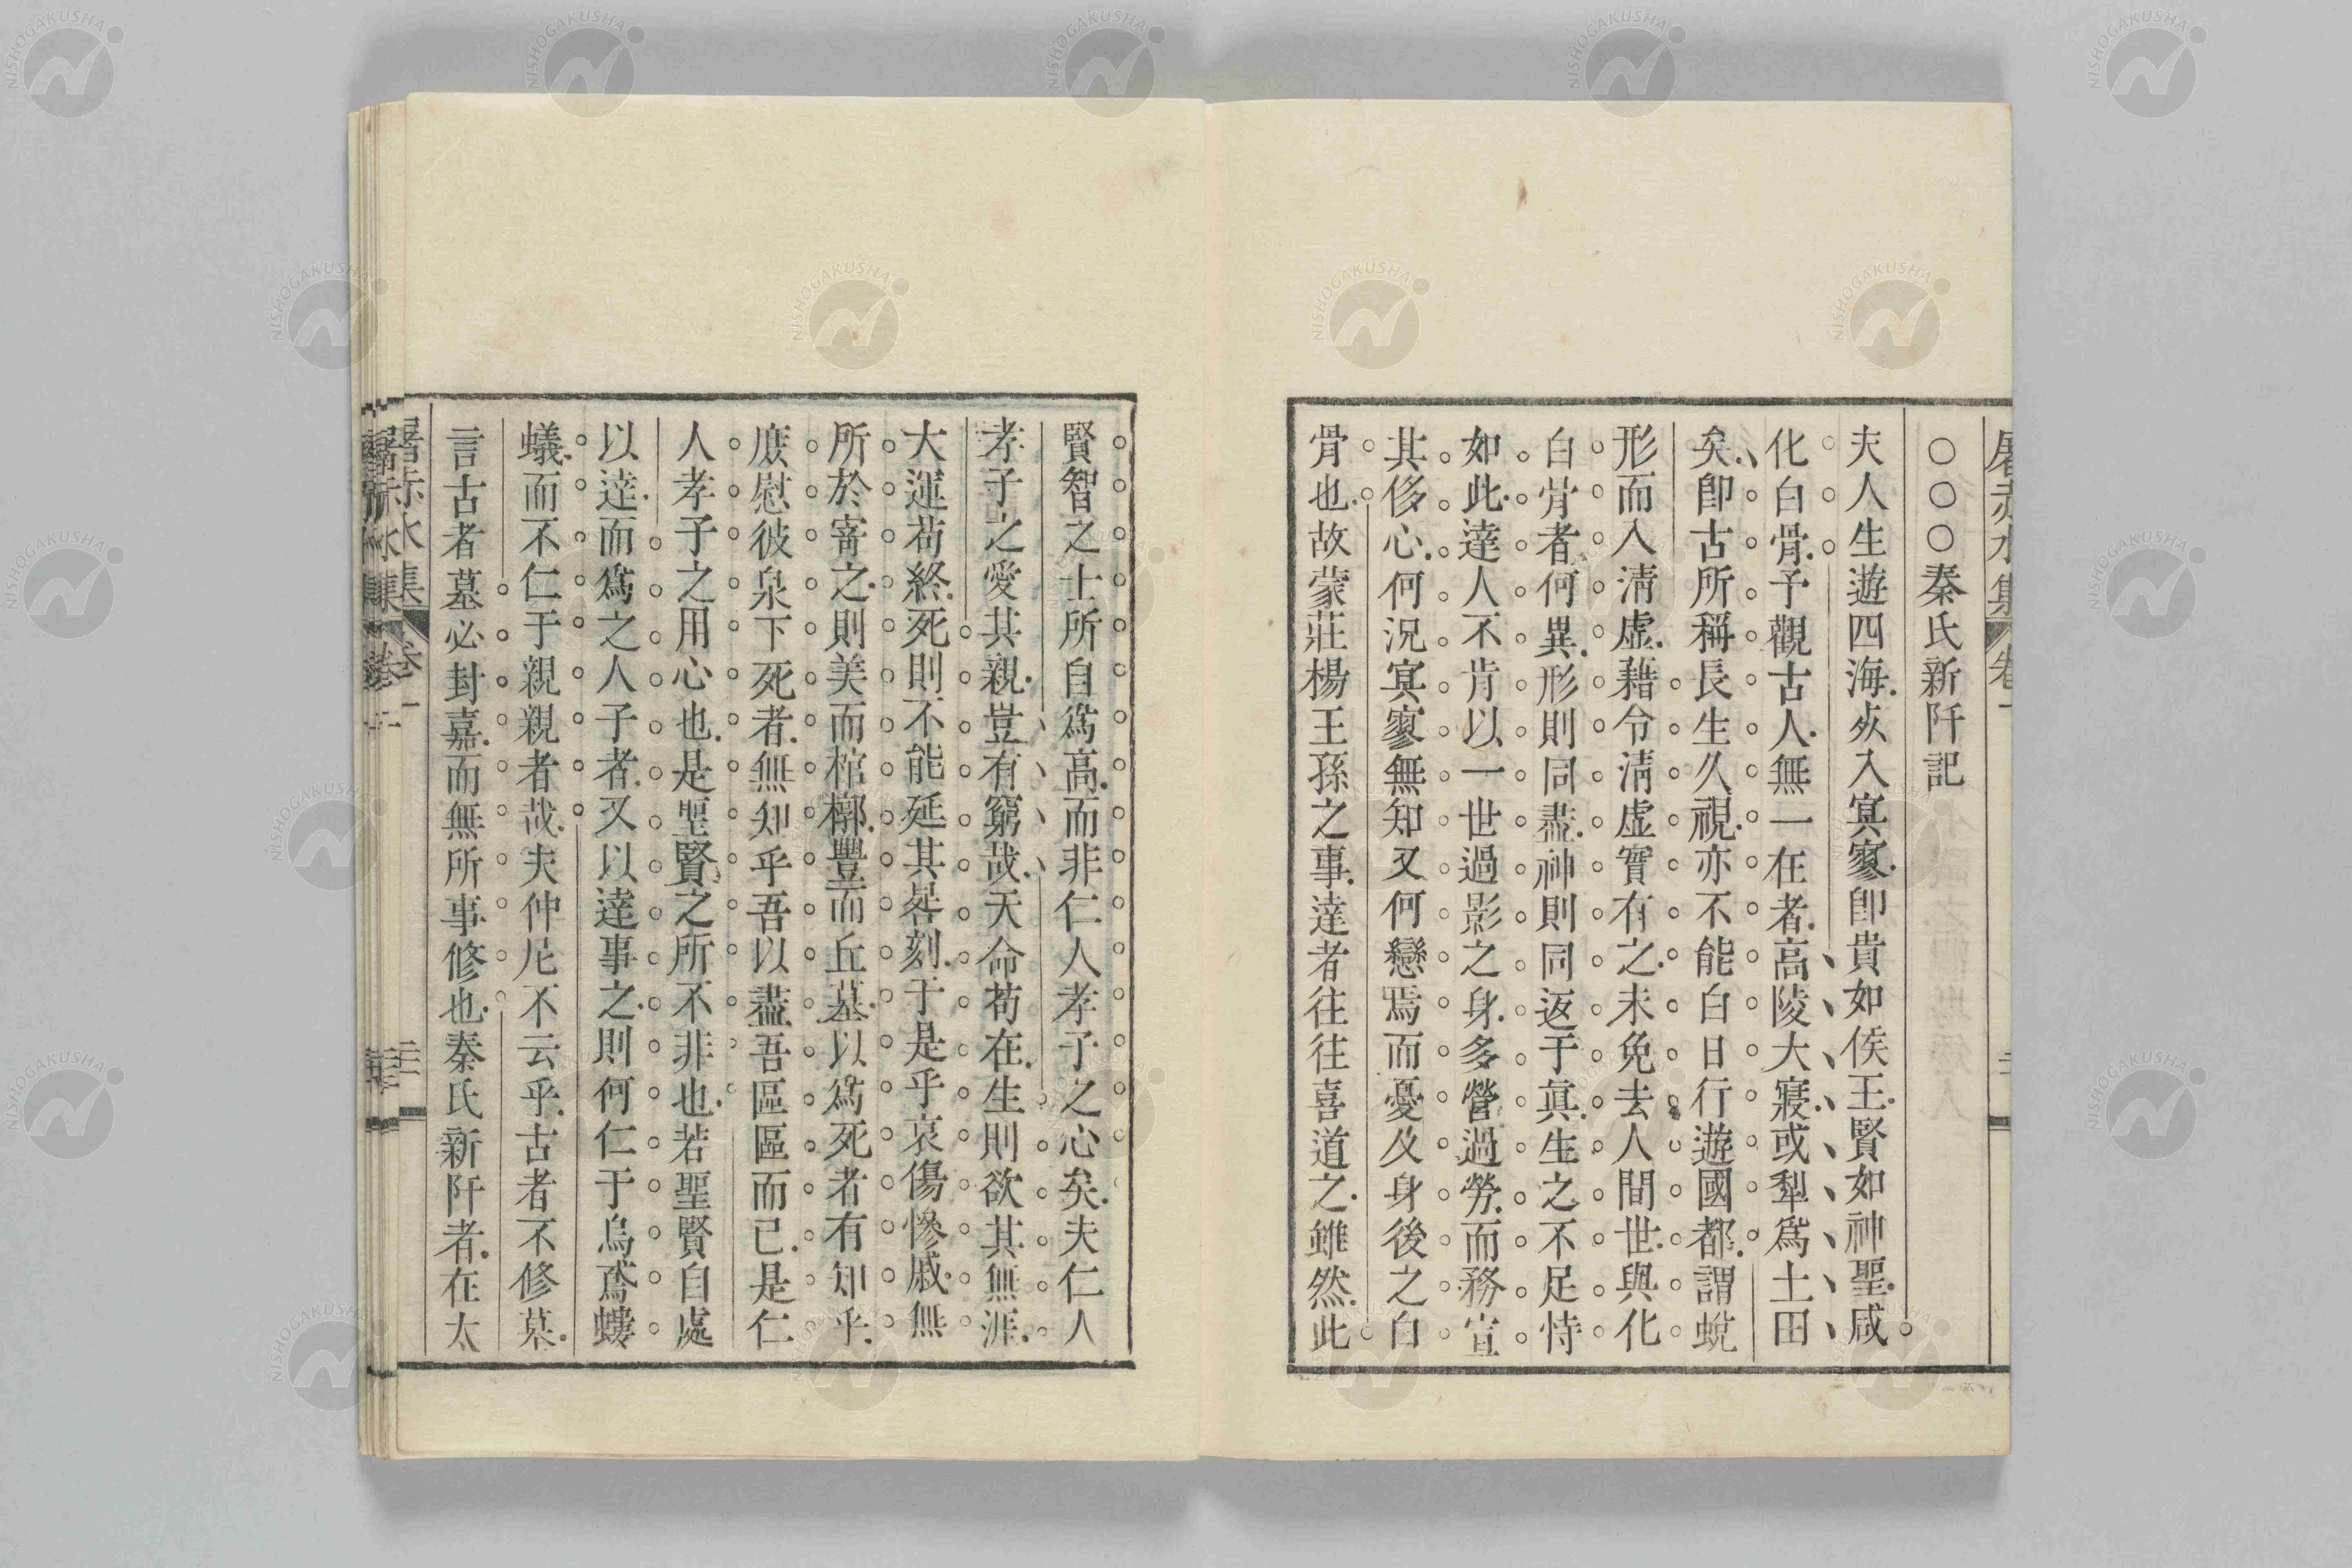 屠赤水集 卷一
○○○秦氏新阡記
夫人生遊四海焂入冥寥卽貴如侯王賢如神聖咸
化白骨予觀古人無一在者高陵大寢或犁爲土田
矣卽古所稱長生久視亦不能白日行遊國都謂蛻
形而入淸虛藉令淸虛實有之未免去人間世與化
白骨者何異形則同盡神則同返于眞生之不足恃
如此達人不肯以一世過影之身多營過勞而務宣
其侈心何況冥寥無知又何戀焉而憂及身後之白
骨也故蒙莊楊王孫之事達者往往喜道之雖然此
賢智之士所自爲高而非仁人孝子之心矣夫仁人
孝子之愛其親豈有窮哉天命苟在生則欲其無涯
大運苟終死則不能延其晷刻于是乎哀傷慘戚無
所於寄之則美而棺槨豐而丘墓以爲死者有知乎
庶慰彼泉下死者無知乎吾以盡吾區區而已是仁
人孝子之用心也是聖賢之所不非也若聖賢自處
以達而爲之人子者又以達事之則何仁于烏鳶螻
蟻而不仁于親親者哉夫仲尼不云乎古者不修墓
言古者墓必封嘉而無所事修也秦氏新阡者在太
屠赤水集 卷一 三
NISHOGAKUSHA